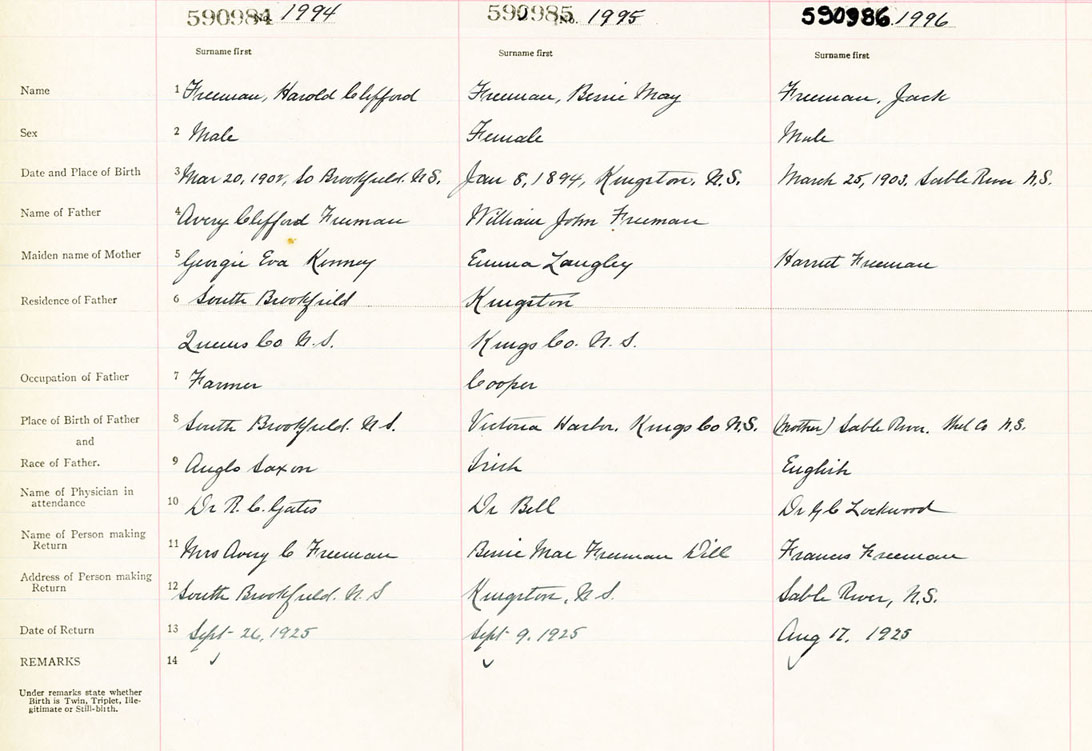 590984 No. 1994 590985 No. 1995 590986 1996
Surname first Surname first Surname first
Name 1 Freeman, Harold Clifford Freeman, Bessie May Freeman, Jack
Sex 2 Male Female Male
Date and Place of Birth 3 Mar 20, 1902, So Brookfield. N.S. Jan 8, 1894, Kingston, N.S. March 25, 1903, Sable River N.S.
Name of Father 4 Avery Clifford Freeman William John Freeman
Maiden name of Mother 5 Georgie Eva Kenney Emma Langley Harriet Freeman
Residence of Father 6 South Brookfield Kingston
Queens Co N.S. Kings Co. N.S.
Occupation of Father 7 Farmer Cooper
Place of Birth of Father 8 South Brookfield. N.S. Victoria Harbor, Kings Co N.S. (Mother) Sable River. Shel Co N.S.
and
Race of Father. 9 Anglo Saxon Irish English
Name of Physician in
attendance 10 Dr R. C. Gates Dr Bell Dr Lockwood
Name of Person making
Return 11 Mrs Avery C Freeman Bessie Mae Freeman Dill Francis Freeman
Address of Person making
Return 12 South Brookfield. N.S Kingston, N.S. Sable River, N.S.
Date of Return 13 Sept 26, 1925 Sept 9, 1925 Aug 17, 1925
REMARKS 14
Under remarks state whether
Birth is Twin, Triplet, Ille-
gitimate or Still-birth.